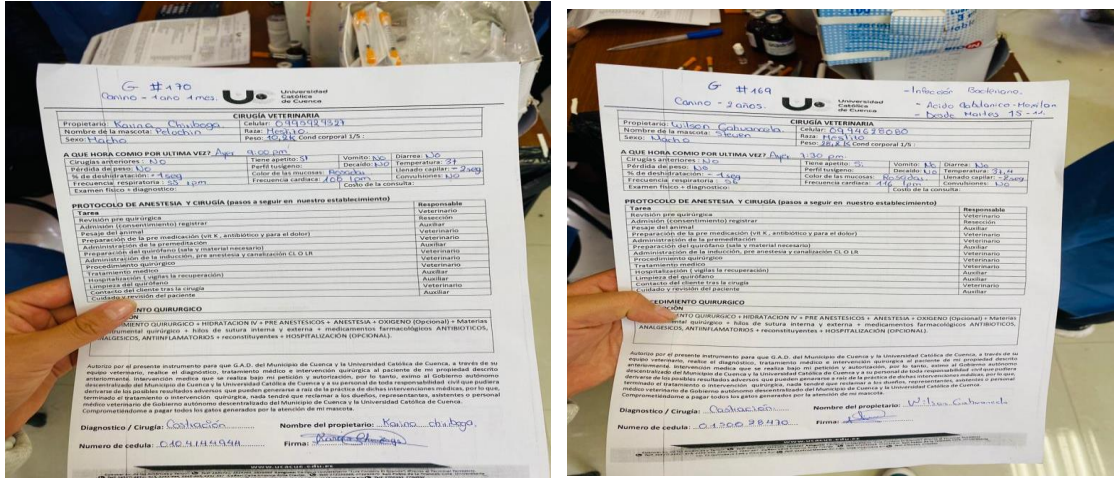 G #170
Canino - 1 año 1 mes.
UC
Universidad
Católica
de Cuenca
CIRUGÍA VETERINARIA
Propietario: Karina Chiriboga Celular: 0990929327
Nombre de la mascota: Pelochin Raza: Mestizo
Sexo: Macho Peso: 10,2 k Cond corporal 1/5 :
A QUE HORA COMIO POR ULTIMA VEZ? Ayer 9:00 pm.
Cirugías anteriores: No Tiene apetito: Si Vomito: No Diarrea: No
Pérdida de peso: No Perfil tusígeno: Decaído: No Temperatura: 37
% de deshidratación: - 1 seg Color de las mucosas: Rosadas Llenado capilar: - 2 seg
Frecuencia respiratoria: 55 rpm Frecuencia cardiaca: 108 lpm Convulsiones: No
Examen físico + diagnostico: Costo de la consulta:
PROTOCOLO DE ANESTESIA Y CIRUGÍA (pasos a seguir en nuestro establecimiento)
Tarea Responsable
Revisión pre quirúrgica Veterinario
Admisión (consentimiento) registrar Resección
Pesaje del animal Auxiliar
Preparación de la pre medicación (vit K , antibiótico y para el dolor) Veterinario
Administración de la premeditación Veterinario
Preparación del quirófano (sala y material necesario) Auxiliar
Administración de la inducción, pre anestesia y canalización CL O LR Veterinario
Procedimiento quirúrgico Veterinario
Tratamiento medico Veterinario
Hospitalización ( vigilas la recuperación) Auxiliar
Limpieza del quirófano Auxiliar
Contacto del cliente tras la cirugía Veterinario
Cuidado y revisión del paciente Auxiliar
ENTO QUIRURGICO
MIENTO QUIRURGICO + HIDRATACION IV + PRE ANESTESICOS + ANESTESIA + OXIGENO (Opcional) + Materias
rumental quirúrgico + hilos de sutura interna y externa + medicamentos farmacológicos ANTIBIOTICOS,
ANALGESICOS, ANTIINFLAMATORIOS + reconstituyentes + HOSPITALIZACIÓN (OPCIONAL).
Autorizo por el presente instrumento para que G.A.D. del Municipio de Cuenca y la Universidad Católica de Cuenca, a través de su
equipo veterinario, realice el diagnóstico, tratamiento médico e intervención quirúrgica al paciente de mi propiedad descrito
anteriormente. Intervención medica que se realiza bajo mi petición y autorización, por lo tanto, eximo al Gobierno autónomo
descentralizado del Municipio de Cuenca y la Universidad Católica de Cuenca y a su personal de toda responsabilidad civil que pudiera
derivarse de los posibles resultados adversos que pueden generarse a raíz de la práctica de dichas intervenciones médicas, por lo que,
terminado el tratamiento o intervención quirúrgica, nada tendré que reclamar a los dueños, representantes, asistentes o personal
médico veterinario de Gobierno autónomo descentralizado del Municipio de Cuenca y la Universidad Católica de Cuenca.
Comprometiéndome a pagar todos los gatos generados por la atención de mi mascota.
Diagnostico / Cirugía: Castración Nombre del propietario: Karina chiriboga
Numero de cedula: 0104144944 Firma:
www.ucacue.edu.ec
G #169
Canino - 2 años.
- Infección Bacteriana.
- Desde Martes 15 -
UC
Universidad
Católica
de Cuenca
CIRUGÍA VETERINARIA
Propietario: Wilson Celular: 0994628080
Nombre de la mascota: Steven Raza: Mestizo
Sexo: Macho Peso: Cond corporal 1/5 :
A QUE HORA COMIO POR ULTIMA VEZ? Ayer 7:30 pm.
Cirugías anteriores: No Tiene apetito: Si Vomito: No Diarrea: No
Pérdida de peso: No Perfil tusígeno: Decaído: No Temperatura: 37,4
% de deshidratación: - 1 seg Color de las mucosas: Rosadas Llenado capilar: - 2 seg
Frecuencia respiratoria: 56 Frecuencia cardiaca: 116 lpm Convulsiones: No
Examen físico + diagnostico: Costo de la consulta:
PROTOCOLO DE ANESTESIA Y CIRUGÍA (pasos a seguir en nuestro establecimiento)
Tarea Responsable
Revisión pre quirúrgica Veterinario
Admisión (consentimiento) registrar Resección
Pesaje del animal Auxiliar
Preparación de la pre medicación (vit K , antibiótico y para el dolor) Veterinario
Administración de la premeditación Veterinario
Preparación del quirófano (sala y material necesario) Auxiliar
Administración de la inducción, pre anestesia y canalización CL O LR Veterinario
Procedimiento quirúrgico Veterinario
Tratamiento medico Veterinario
Hospitalización ( vigilas la recuperación) Auxiliar
Limpieza del quirófano Auxiliar
Contacto del cliente tras la cirugía Veterinario
Cuidado y revisión del paciente Auxiliar
CEDIMIENTO QUIRURGICO
CIÓN
ENTO QUIRURGICO + HIDRATACION IV + PRE ANESTESICOS + ANESTESIA + OXIGENO (Opcional) + Materias
mental quirúrgico + hilos de sutura interna y externa + medicamentos farmacológicos ANTIBIOTICOS,
ANALGESICOS, ANTIINFLAMATORIOS + reconstituyentes + HOSPITALIZACIÓN (OPCIONAL).
Autorizo por el presente instrumento para que G.A.D. del Municipio de Cuenca y la Universidad Católica de Cuenca, a través de su
equipo veterinario, realice el diagnóstico, tratamiento médico e intervención quirúrgica al paciente de mi propiedad descrito
anteriormente. Intervención medica que se realiza bajo mi petición y autorización, por lo tanto, eximo al Gobierno autónomo
descentralizado del Municipio de Cuenca y la Universidad Católica de Cuenca y a su personal de toda responsabilidad civil que pudiera
derivarse de los posibles resultados adversos que pueden generarse a raíz de la práctica de dichas intervenciones médicas, por lo que,
terminado el tratamiento o intervención quirúrgica, nada tendré que reclamar a los dueños, representantes, asistentes o personal
médico veterinario de Gobierno autónomo descentralizado del Municipio de Cuenca y la Universidad Católica de Cuenca.
Comprometiéndome a pagar todos los gatos generados por la atención de mi mascota.
Diagnostico / Cirugía: Castración Nombre del propietario: Wilson
Numero de cedula: Firma:
www.ucacue.edu.ec